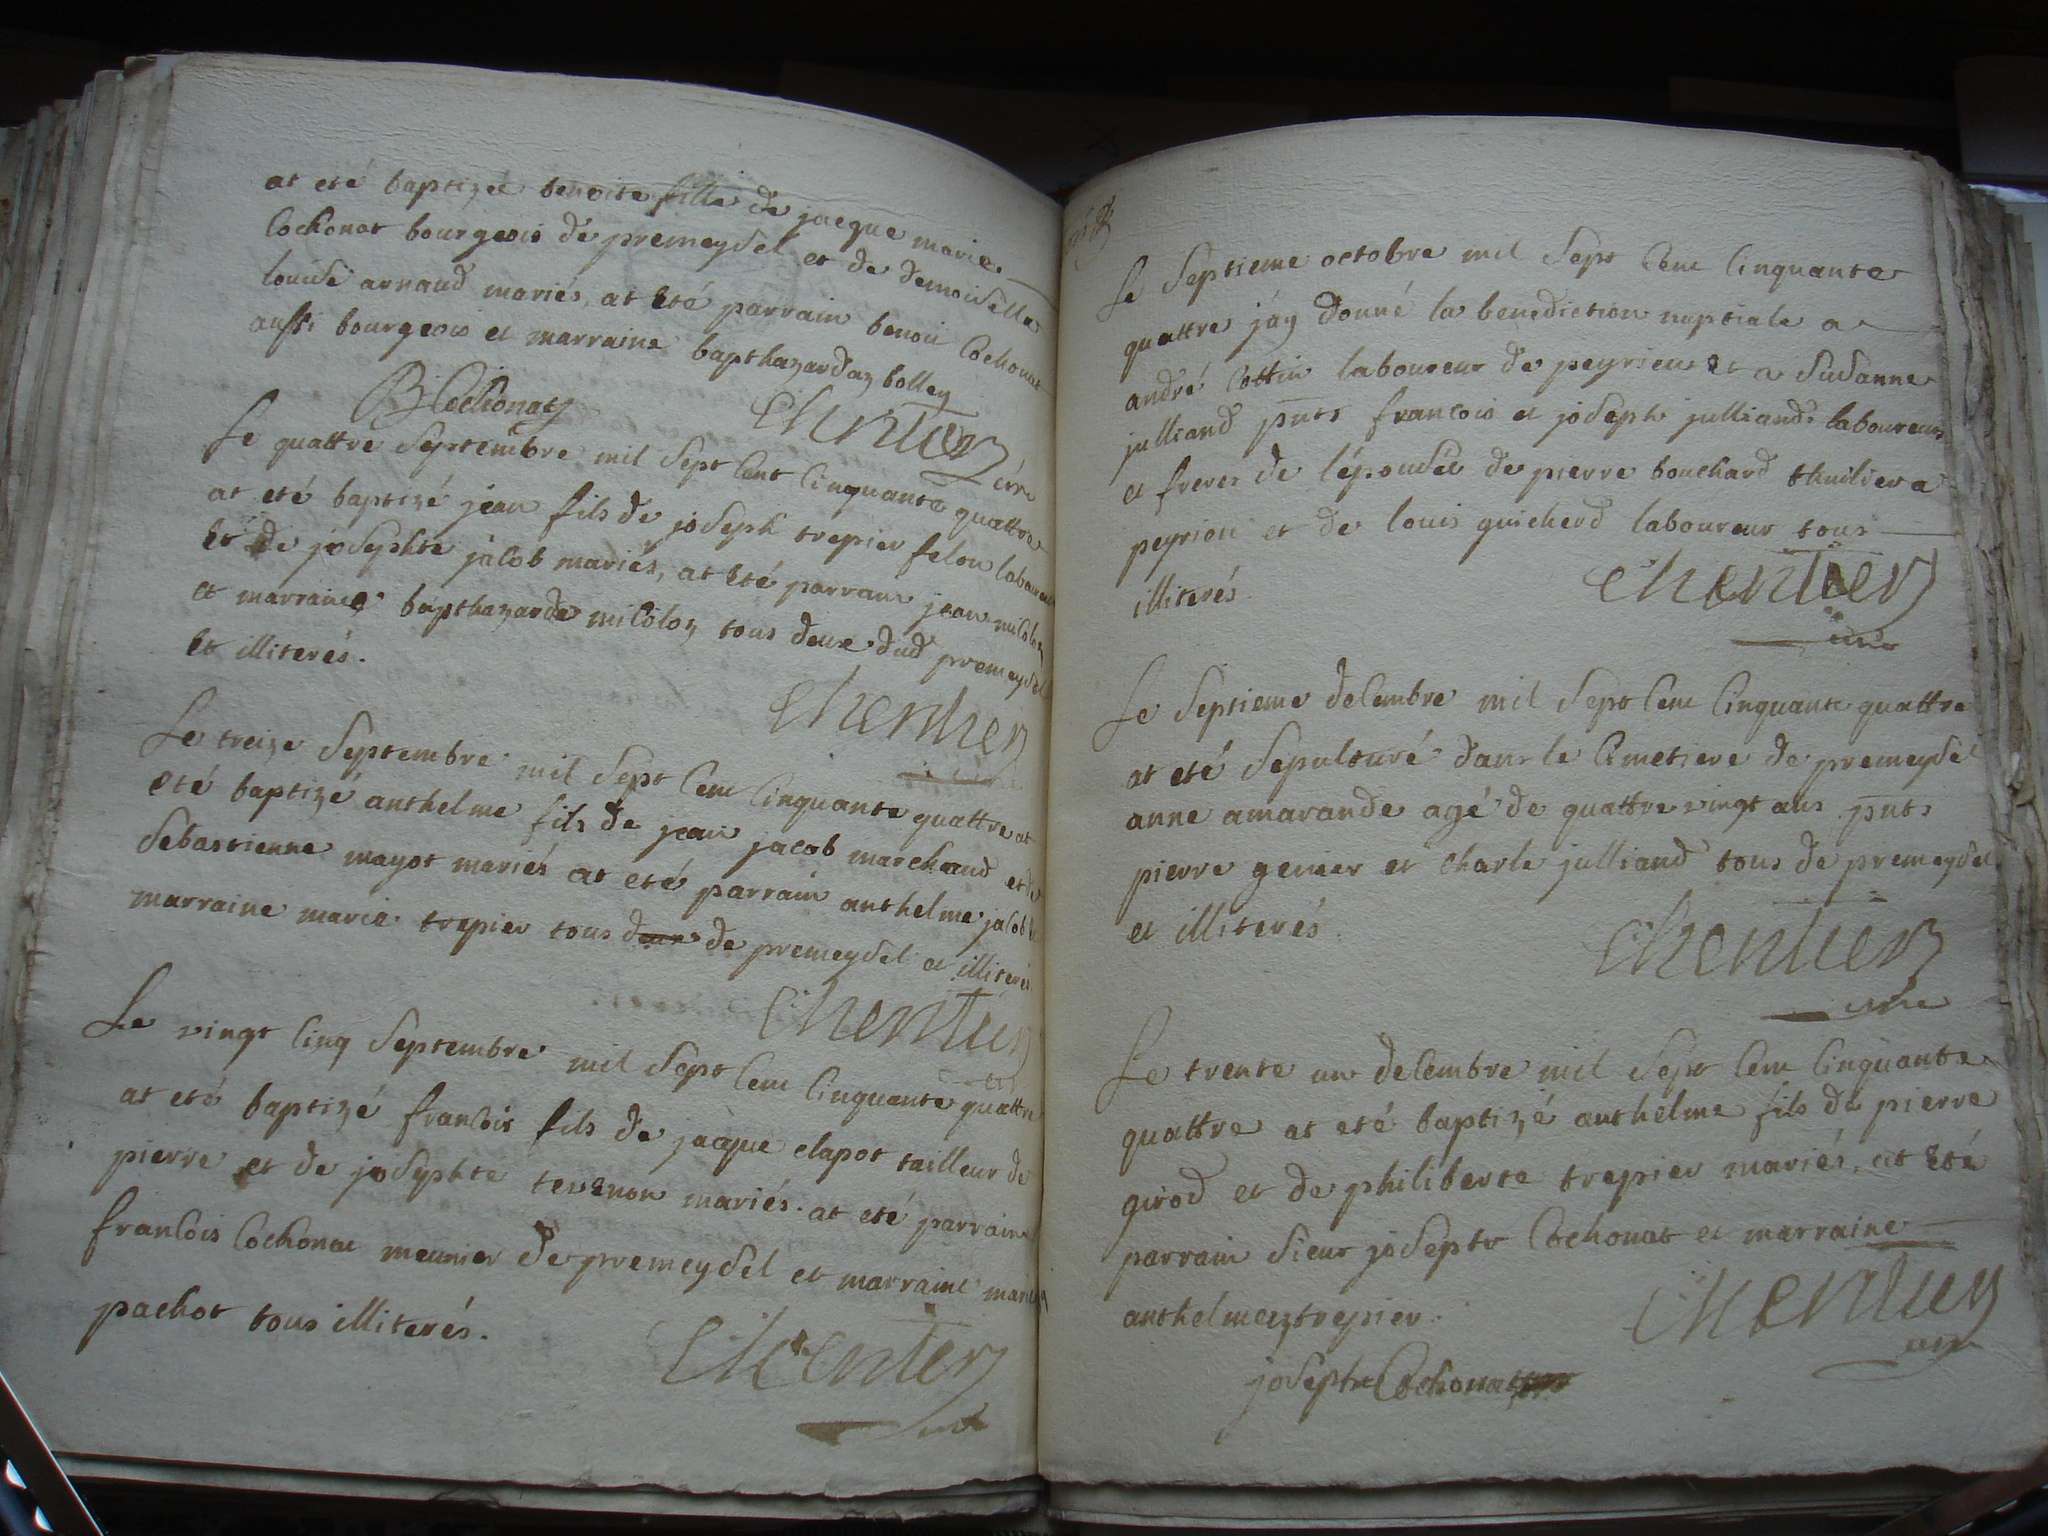 at eté baptizée benoite fille de jacque marie
Cochonat bourgeois de premeysel et de demoiselle
louise arnaud mariés, at eté parrain benoit Cochonat
aussi bourgeois et marraine bapthazardaz bolley
B: Cochonatz Chentier
curé
Le quattre septembre mil sept cent cinquante quattre
at eté baptizé jean fils de joseph trepier felon laboureur
et de josephte jacob mariés, at eté parrain jean
et marraine bapthazarde milsloz tous deux dud premeysel
et illiterés.
Chentier
Le treize septembre mil sept cent cinquante quattre at
eté baptizé anthelme fils de jean jacob marchand et de
sebastienne mayot mariés at eté parrain anthelme jacob
marraine marie trepier tous de premeysel et illiterés
Chentier
Le vingt cinq septembre mil sept cent cinquante quattre
at eté baptizé francois fils de jacque clapot tailleur de
pierre et de josephte tevenon mariés. at eté parrain
francois Cochonat meunier de premeysel et marraine marie
pachot tous illiterés.
Chentier
curé
Le septieme octobre mil sept cent cinquante
quattre j'ay donné la benediction nuptiale a
andré Cottin laboureur de peyrieu et a susanne
julliand pnts francois et joseph julliands laboureurs
et freres de l'épousée de pierre bouchard thuilier a
peyrieu et de louis guicherd laboureur tous
illiterés.
Chentier
curé
Le septieme decembre mil sept cent cinquante quattre
at eté sepulturé dans le Cimetiere de premeysel
anne amarande agé de quattre vingt ans pnts
pierre genier et Charle julliand tous de premeysel
et illiterés
Chentier
curé
Le trente un decembre mil sept cent cinquante
quattre at eté baptizé anthelme fils de pierre
girod et de philiberte trepier mariés, at eté
parrain sieur joseph Cochonat et marraine
anthelmaz trepier.
Chentier
curé
joseph Cochonat